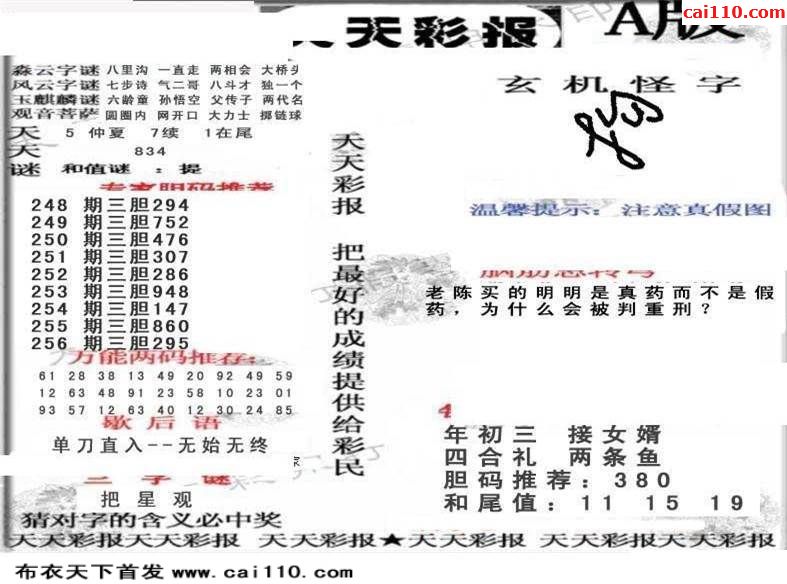 cai110.com
天天彩报】 A版
淼云字谜 八里沟 一直走 两相会 大桥头
风云字谜 七步诗 气二哥 八斗才 独一个
玉麒麟谜 六龄童 孙悟空 父传子 两代名
观音菩萨 圆圈内 网开口 大力士 掷链球
天 5 仲夏 7续 1在尾
天 834
谜 和值谜 : 提
专家胆码推荐
248 期三胆294
249 期三胆752
250 期三胆476
251 期三胆307
252 期三胆286
253 期三胆948
254 期三胆147
255 期三胆860
256 期三胆295
万能两码推荐:
61 28 38 13 49 20 92 49 59
12 63 48 91 23 58 10 23 01
93 57 12 63 40 12 30 24 85
歇后语
单刀直入--无始无终
三字谜
把星观
猜对字的含义必中奖
天天彩报 把最好的成绩提供给彩民
玄机怪字
温馨提示: 注意真假图
脑筋急转弯
老陈买的明明是真药而不是假
药，为什么会被判重刑？
4
年初三 接女婿
四合礼 两条鱼
胆码推荐: 380
和尾值: 11 15 19
天天彩报天天彩报 天天彩报★天天彩报 天天彩报天天彩报
布衣天下首发 www.cai110.com